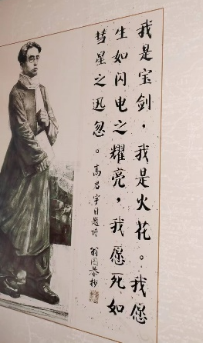 我是宝剑，我是火花。我愿
生如闪电之耀亮，我愿死如
彗星之迅忽。高君宇自题